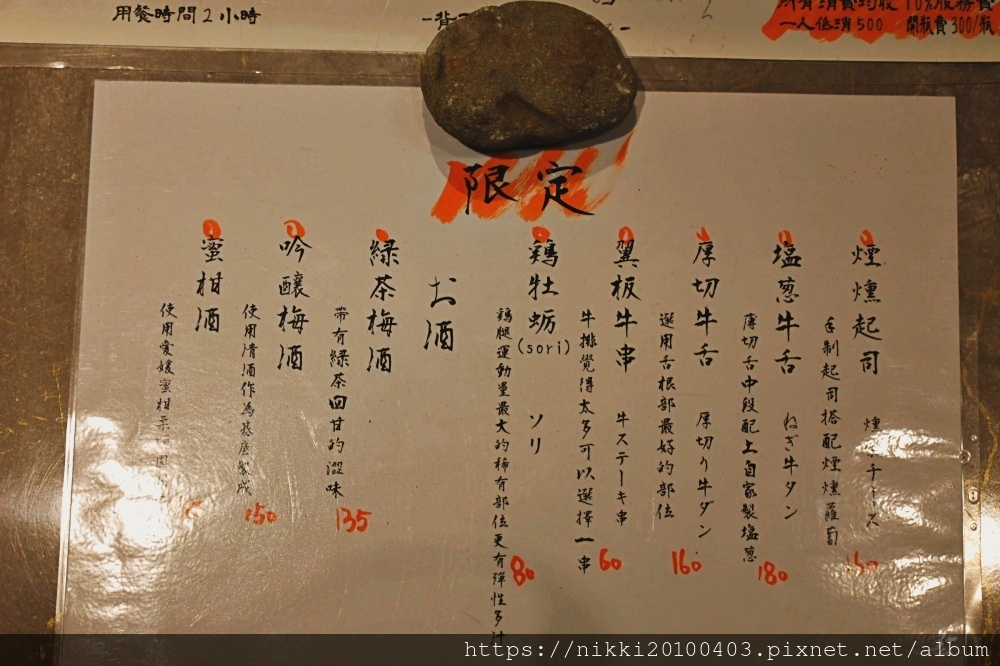 用餐時間2小時
所有消費均收10%服務費
一人低消500 開瓶費300/瓶
限定
煙燻起司
手制起司搭配煙燻蘿蔔
塩葱牛舌 ねぎ牛タン
薄切舌中段配上自家製塩葱
180
厚切牛舌 厚切り牛ダン
選用舌根部最好的部位
160
翼板牛串 牛ステーキ串
牛排覺得太多可以選擇一串
60
鶏牡蛎(sori) ソリ
鶏腿運動量最大的稀有部位更有彈性多汁
80
お酒
緑茶梅酒
帶有緑茶回甘的澀味
135
吟釀梅酒
使用清酒作為基底製成
150
蜜柑酒
使用愛媛蜜柑
https://nikki20100403.pixnet.net/album